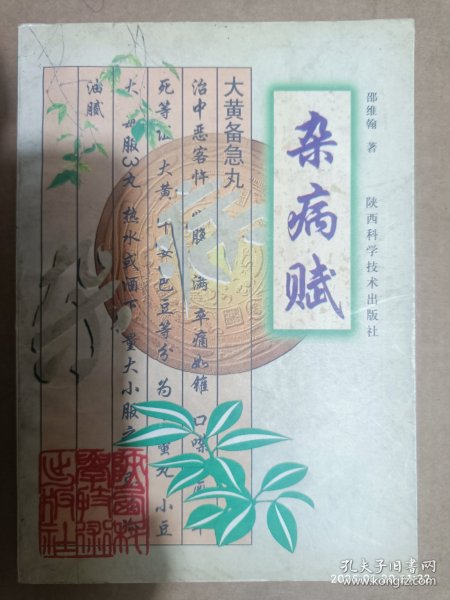 邵维翰 著
陕西科学技术出版社
杂病赋
大黄备急丸
治中恶客忤 心腹 满 卒痛如锥 口噤
死等证 大黄 干姜 巴豆等分 为 蜜丸 小豆
大 每服3丸 热水或酒下 量大小服之
油腻
孔夫子旧书网